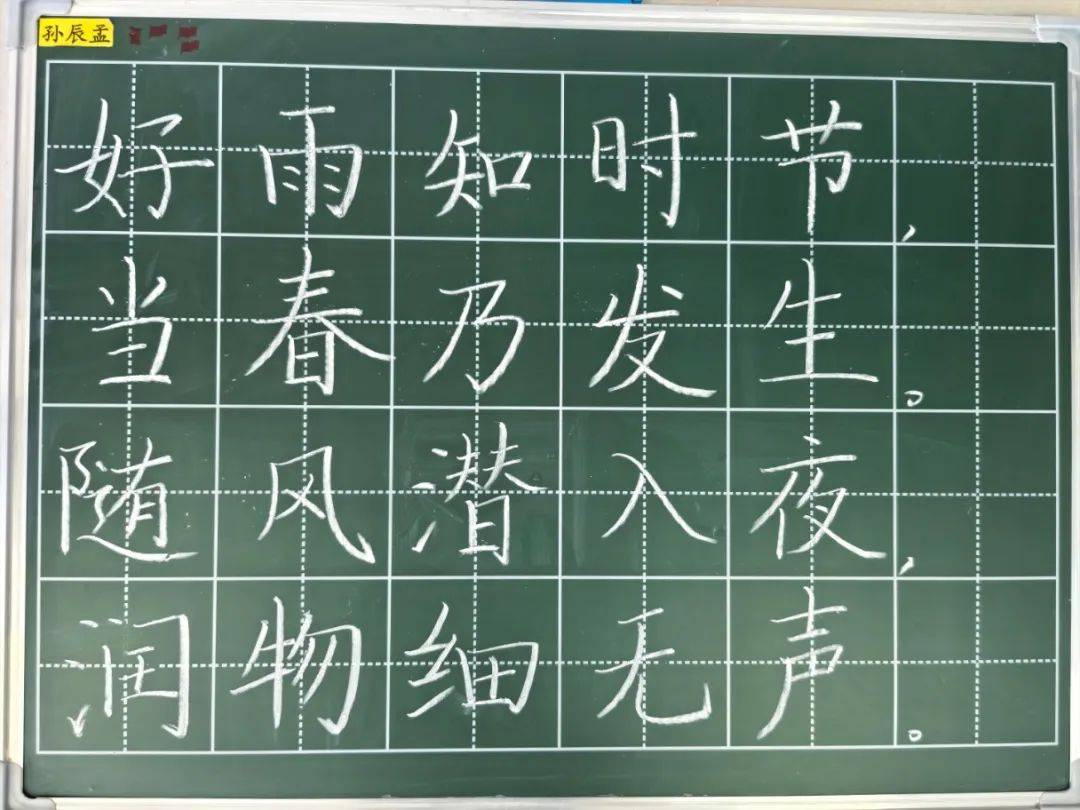 孙辰孟
好雨知时节，
当春乃发生。
随风潜入夜，
润物细无声。